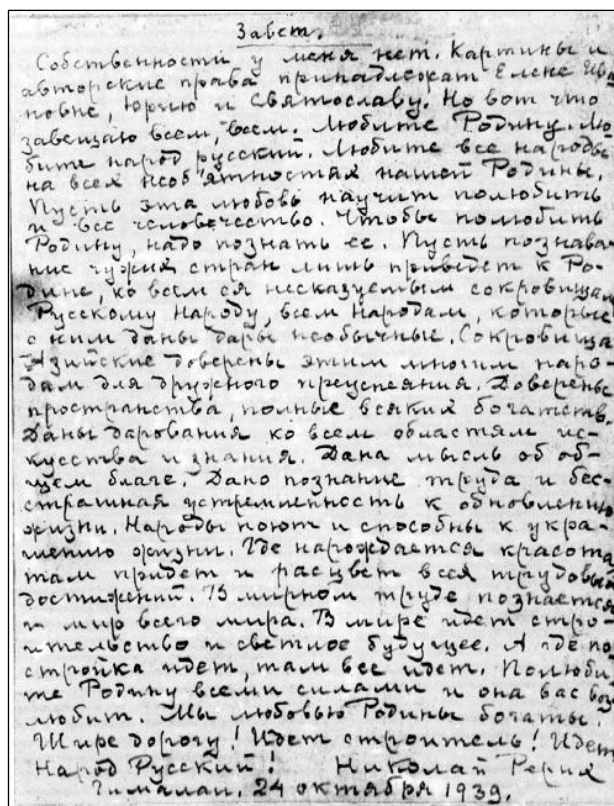 Завет.
Собственности у меня нет. Картины и
авторские права принадлежат Елене Ива
новне, Юрию и Святославу. Но вот что
завещаю всем, всем. Любите Родину. Лю
бите народ русский. Любите все народы
на всех необ'ятностях нашей Родины.
Пусть эта любовь научит полюбить
и все человечество. Чтобы полюбить
Родину, надо познать ее. Пусть познава
ние чужих стран лишь приведет к Ро-
дине, ко всем ея несказуемым сокровищам
Русскому народу, всем народам, которые
с ним даны дары необычные. Сокровища
Азийские доверены этим многим наро-
дам для дружного преуспеяния. Доверены
пространства, полные всяких богатств.
Даны дарования ко всем областям ис-
кусства и знания. Дана мысль об об-
щем благе. Дано познание труда и бес-
страшная устремленность к обновлению
жизни. Народы поют и способны к укра-
шению жизни. Где нарождается красота
там придет и расцвет всех трудовых
достижений. В мирном труде познается
и мир всего мира. В мире идет стро-
ительство и светлое будущее. А где по
стройка идет, там все идет. Полюби
те Родину всеми силами и она вас воз
любит. Мы любовью Родины богаты.
Шире дорогу! Идет строитель! Идет
Народ Русский! Николай Рерих
Гималаи, 24 октября 1939.